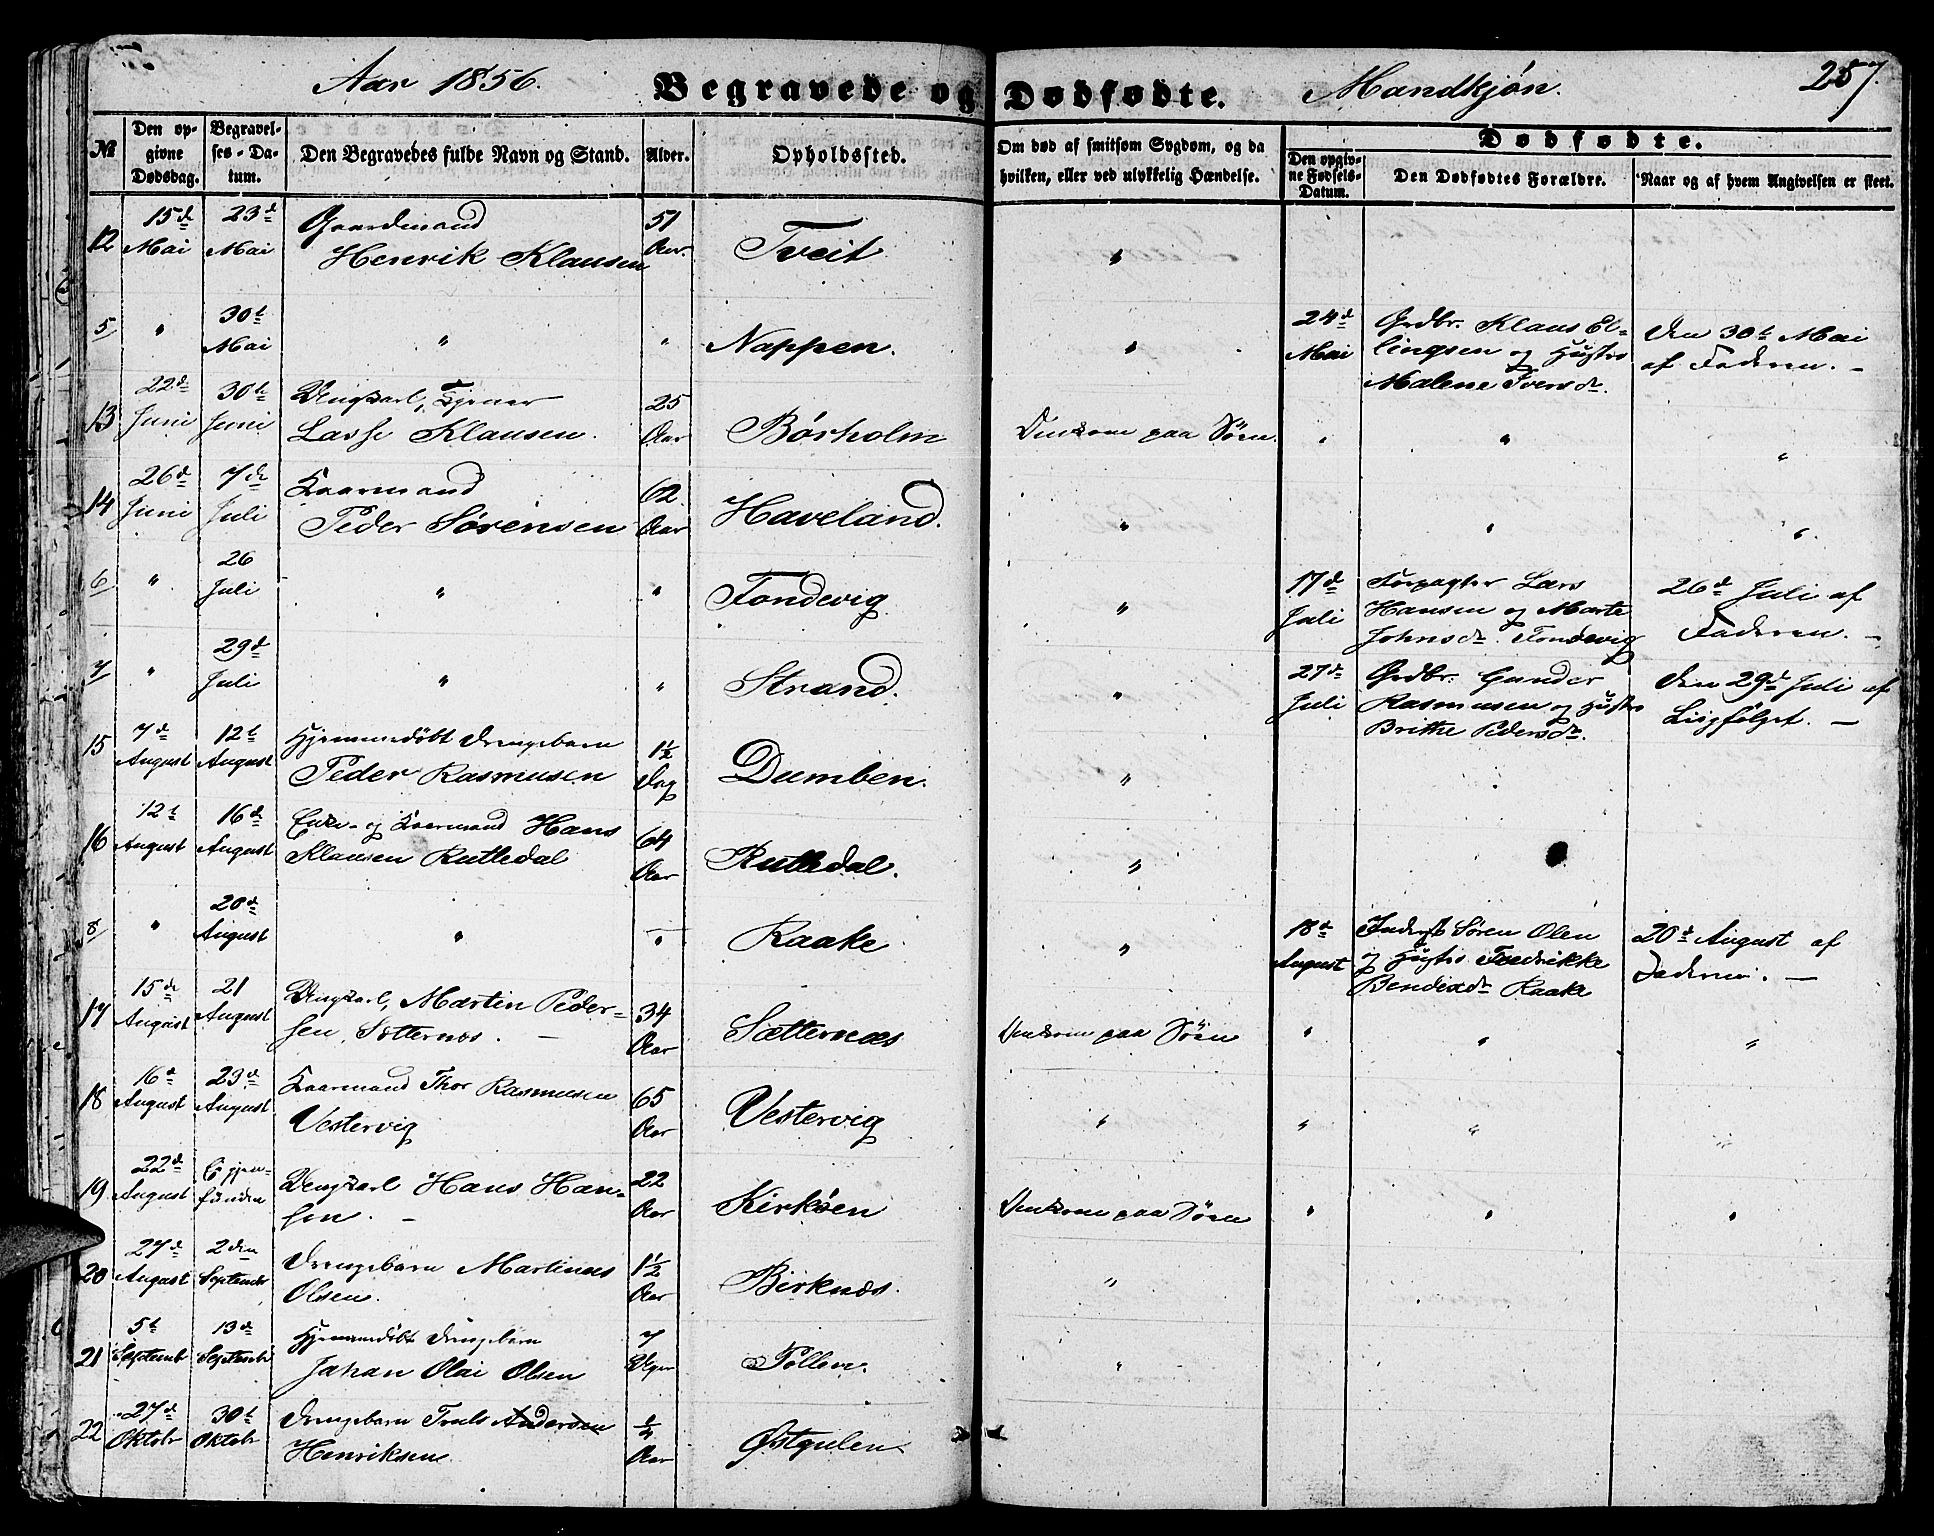 Aar 1856. Begravede og Dødfødte. Mandkjøn. 257.
№ Den opgivne Dødsdag. Begravelses-Datum. Den Begravedes fulde Navn og Stand. Alder. Opholdssted. Om død af smitsom Sygdom, og da hvilken, eller ved ulykkelig Hændelse. Dødfødte. Den opgivne Fødsels-Datum. Den Dødfødtes Forældre. Naar og af hvem Angivelsen er skeet.
12 15d Mai 23d Mai Gaardmand Henrik Klausen 51 Aar. Tveit "
5 " 30t Mai " " Nappen. " 24d Mai Grdbr. Klaus Ellingsen og Hustro Malene Iversdr. Den 30t Mai af Faderen. –
13 22d Juni 30t Juni Ungkarl, Tjener Lasse Klausen. 25 Aar Børholm Omkom paa Søen. " " "
14 26d Juni 7de Juli Kaarmand Peder Sørensen 62 Aar Haveland. " " "
6 " 26 Juli " " Tondevig " 17d Juli Forpagter Lars Hansen og Marte Johnsdr. Tondevig 26d Juli af Faderen. –
7 " 29d Juli " " Strand. " 27d Juli Grdbr. Gunder Rasmusen og Hustro Brithe Pedersdr. Den 29d Juli af Liigfølget. –
15 7d August 12t August Hjemmedøbt Drengebarn Peder Rasmusen 1½ Dag Dumben. "
16 12t August 16d August Enke- og Kaarmand Hans Klausen Rutledal 64 Aar Rutledal. "
8 " 20d August " " Raake " 18d August Inderst Søren Olsen og Hustro Fredrikke Bendixdr. Raake 20d August af Faderen. –
17 15d August 21 August Ungkarl, Martin Pedersen, Sætternæs. – 34 Aar Sætternæs Omkom paa Søen " " "
18 16d August 23d August Kaarmand Thor Rasmusen Vestervig 65 Aar Vestervig " " " "
19 22d August Ei gjenfunden Ungkarl Hans Hansen. – 22 Aar Kirkøen Omkom paa Søen " " "
20 27d August 2den September Drengebarn Martinus Olsen. 1½ Aar Birknæs. "
21 5t Septemb 13d Septembr Hjemmedøbt Drengebarn Johan Olai Olsen 7 Uger Pollen. "
22 27d Oktobr 30t Oktobr Drengebarn Truls Andersen Henriksen ¼ Aar Østgulen